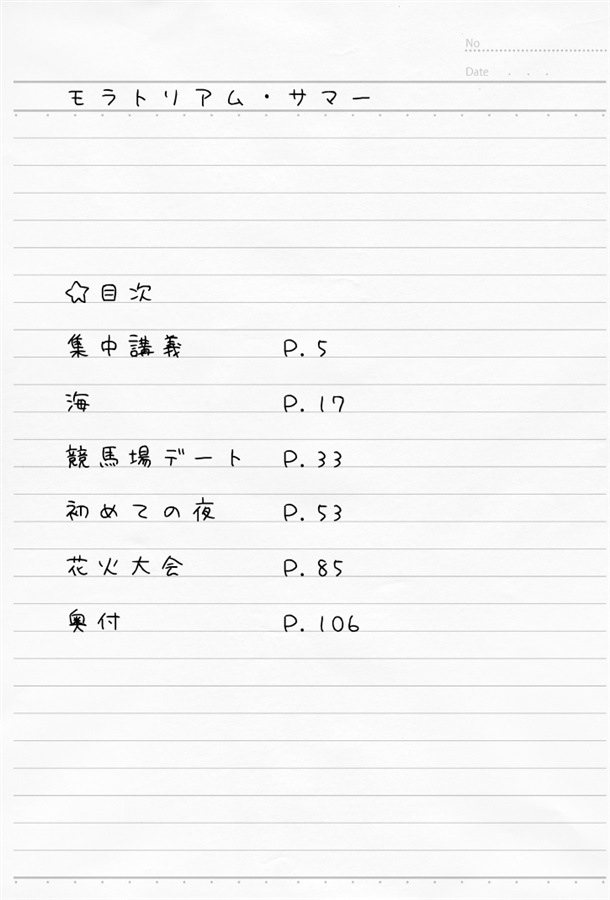 No
Date . . .
モラトリアム・サマー
☆目次
集中講義 P.5
海 P.17
競馬場デート P.33
初めての夜 P.53
花火大会 P.85
奥付 P.106